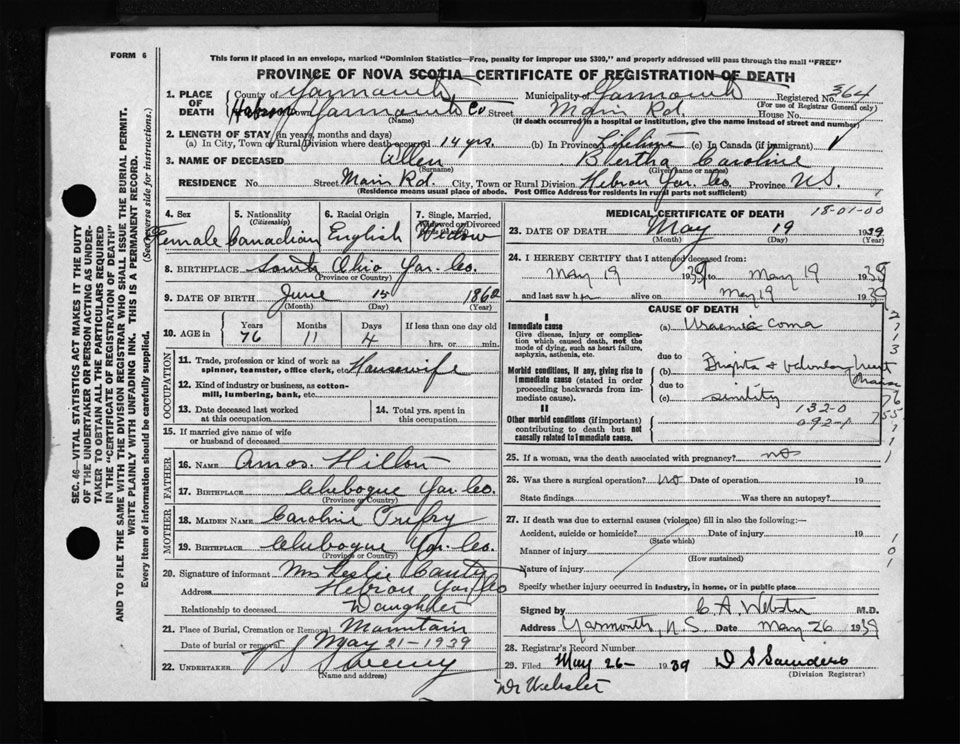 FORM 6
This form if placed in an envelope, marked "Dominion Statistics—Free, penalty for improper use $300," and properly addressed will pass through the mail "FREE"
PROVINCE OF NOVA SCOTIA—CERTIFICATE OF REGISTRATION OF DEATH
1. PLACE OF DEATH County of Yarmouth Municipality of Yarmouth Registered No. 364
(For use of Registrar General only)
Hebron Town Yarmouth Co Street Main Rd. House No.
(Name) (If death occurred in a hospital or institution, give the name instead of street and number)
2. LENGTH OF STAY (in years, months and days)
(a) In City, Town or Rural Division where death occurred 14 yrs. (b) In Province Lifetime (c) In Canada (if immigrant)
3. NAME OF DECEASED Allen Bertha Caroline
(Surname) (Given name or names)
RESIDENCE No. Street Main Rd. City, Town or Rural Division Hebron Yar. Co. Province N.S.
(Residence means usual place of abode. Post Office Address for residents in rural parts not sufficient)
4. Sex 5. Nationality (Citizenship) 6. Racial Origin 7. Single, Married, Widowed or Divorced
Female Canadian English Widow
8. BIRTHPLACE South Ohio Yar. Co.
(Province or Country)
9. DATE OF BIRTH June 15 1862
(Month) (Day) (Year)
10. AGE in Years Months Days If less than one day old
76 11 4 hrs. or min.
OCCUPATION
11. Trade, profession or kind of work as spinner, teamster, office clerk, etc. Housewife
12. Kind of industry or business, as cotton-mill, lumbering, bank, etc.
13. Date deceased last worked at this occupation
14. Total yrs. spent in this occupation
15. If married give name of wife or husband of deceased
FATHER
16. NAME Amos. Hilton
17. BIRTHPLACE Chebogue Yar. Co.
(Province or Country)
MOTHER
18. MAIDEN NAME Caroline
19. BIRTHPLACE Chebogue Yar. Co.
(Province or Country)
20. Signature of informant Mrs Leslie
Address Hebron Yar Co
Relationship to deceased Daughter
21. Place of Burial, Cremation or Removal Mountain
Date of burial or removal May 21-1939
22. UNDERTAKER Sweeny
(Name and address)
MEDICAL CERTIFICATE OF DEATH 18-01-00
23. DATE OF DEATH May 19 1939
(Month) (Day) (Year)
24. I HEREBY CERTIFY that I attended deceased from:
May 19 1939 to May 19 1939
and last saw her alive on May 19 1939
CAUSE OF DEATH
I
Immediate cause
Give disease, injury or complication which caused death, not the mode of dying, such as heart failure, asphyxia, asthenia, etc.
(a) Uraemic coma
due to
Morbid conditions, if any, giving rise to immediate cause (stated in order proceeding backwards from immediate cause).
(b)
due to
(c) senility
II
Other morbid conditions (if important) contributing to death but not causally related to immediate cause.
132-0
25. If a woman, was the death associated with pregnancy? no
26. Was there a surgical operation? no Date of operation 19
State findings Was there an autopsy?
27. If death was due to external causes (violence) fill in also the following:—
Accident, suicide or homicide? Date of injury 19
(State which)
Manner of injury
(How sustained)
Nature of injury
Specify whether injury occurred in industry, in home, or in public place
Signed by C. A. Webster M.D.
Address Yarmouth, N.S. Date May 26 1939
28. Registrar's Record Number
29. Filed May 26- 1939 D S Saunders
(Division Registrar)
Dr Webster
SEC. 46—VITAL STATISTICS ACT MAKES IT THE DUTY
OF THE UNDERTAKER OR PERSON ACTING AS UNDER-
TAKER TO OBTAIN ALL THE PARTICULARS REQUIRED
IN THE "CERTIFICATE OF REGISTRATION OF DEATH"
AND TO FILE THE SAME WITH THE DIVISION REGISTRAR WHO SHALL ISSUE THE BURIAL PERMIT.
WRITE PLAINLY WITH UNFADING INK. THIS IS A PERMANENT RECORD.
Every item of information should be carefully supplied. (See reverse side for instructions.)